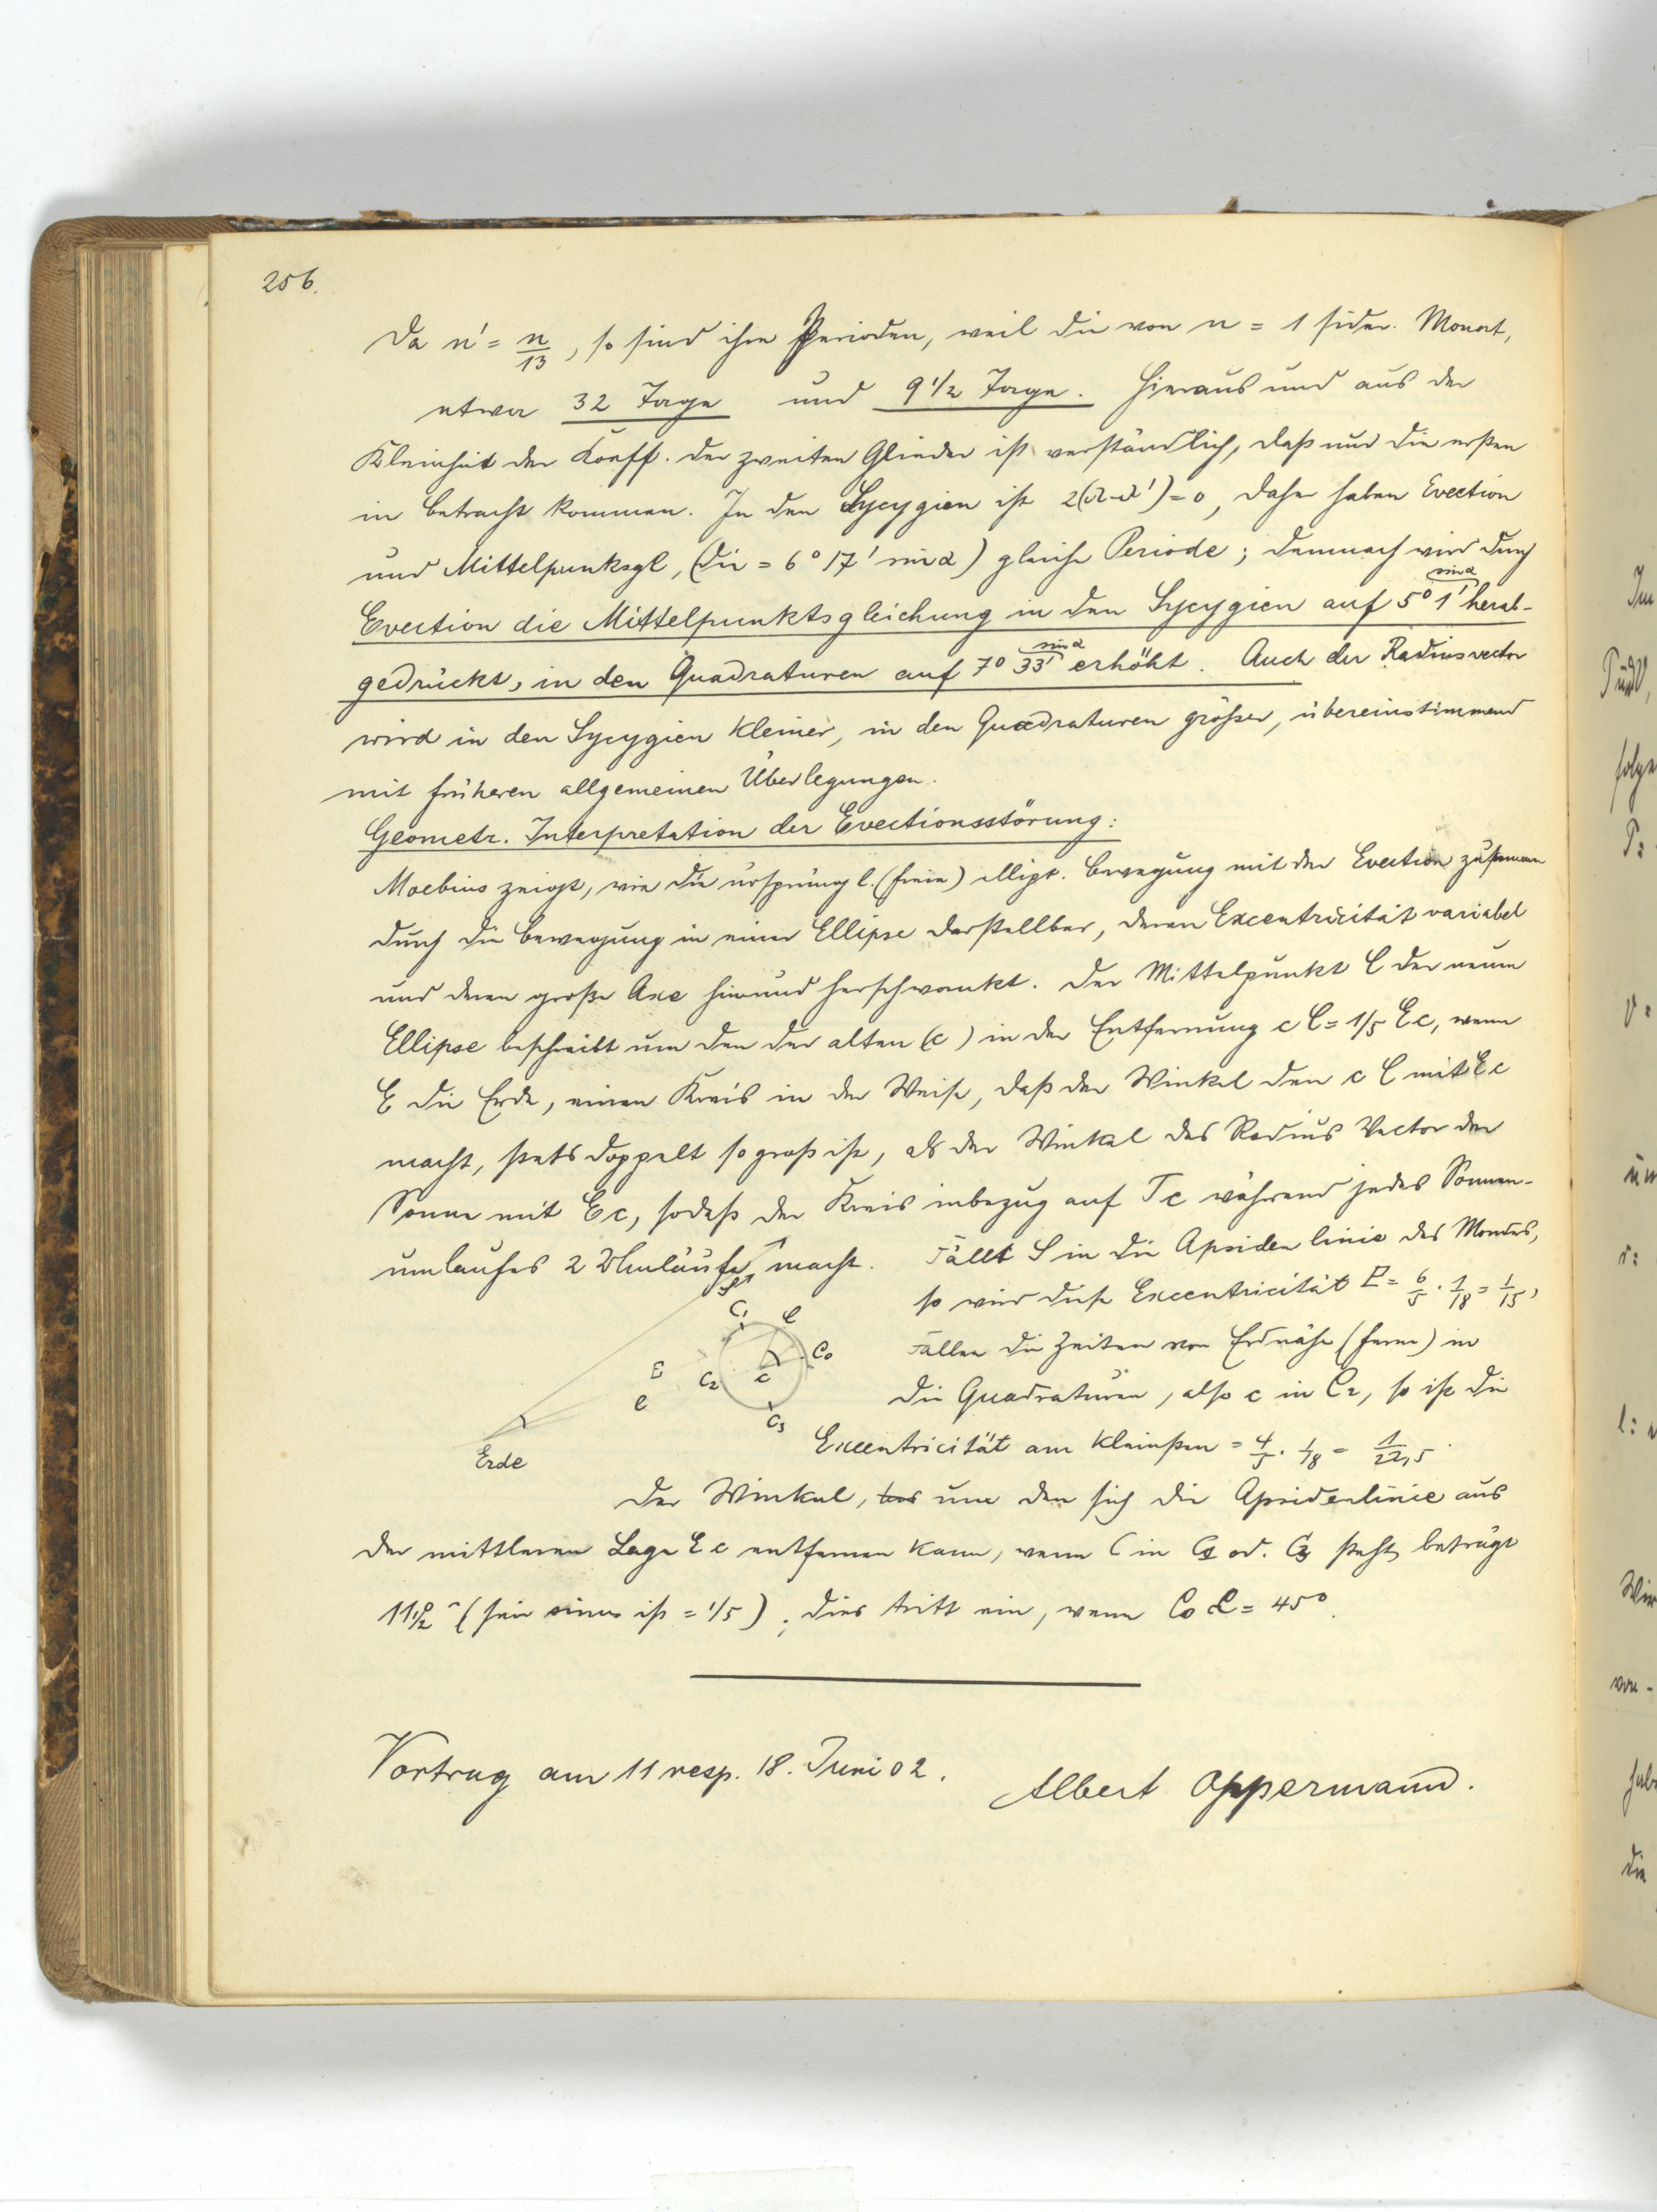 256.
Da n' = n/13, so sind ihre Perioden, weil die von n = 1 sider. Monat,
etwa 32 Tage und 9 1/2 Tage. Hieraus und aus der
Kleinheit der Koeff. der zweiten Glieder ist verständlich, daß nur die ersten
in Betracht kommen. In den Sycygien ist 2(λ-λ') = 0, daher haben Evection
und Mittelpunktsgl, (die = 6° 17' sin α) gleiche Periode; demnach wird durch
Evection die Mittelpunktsgleichung in den Sycygien auf 5° 1' sin α herab-
gedrückt, in den Quadraturen auf 7° 33' sin α erhöht. Auch der Radiusvector
wird in den Sycygien kleiner, in den Quadraturen größer, übereinstimmend
mit früheren allgemeinen Überlegungen.
Geometr. Interpretation der Evectionsstörung:
Moebius zeigt, wie die ursprüngl. (freie) ellipt. Bewegung mit der Evection zusammen
durch die Bewegung in einer Ellipse darstellbar, deren Excentricität variabel
und deren große Axe hin und herschwankt. Der Mittelpunkt C der neuen
Ellipse beschreibt um den der alten (c) in der Entfernung c C = 1/5 Ec, wenn
E die Erde, einen Kreis in der Weise, daß der Winkel den c C mit Ec
macht, stets doppelt so groß ist, als der Winkel des Radius Vector der
Sonne mit Ec, sodaß der Kreis inbezug auf Tc während jedes Sonnen-
umlaufes 2 Umläufe macht. Fällt S in die Apsidenlinie des Mondes,
so wird diese Excentricität E = 6/5 · 1/18 = 1/15,
Fallen die Zeiten von Erdnähe (ferne) in
die Quadraturen, also c in C2, so ist die
Excentricität am kleinsten = 4/5 · 1/18 = 1/22,5.
C1 C C0 C2 c C3
E
C
Erde
Der Winkel, um den sich die Apsidenlinie aus
der mittleren Lage Ec entfernen kann, wenn C in C1 od. C3 steht, beträgt
11 1/2° (sein sinus ist = 1/5); dies tritt ein, wenn C0 C = 45°.
Vortrag am 11 resp. 18. Juni 02. Albert Oppermann.